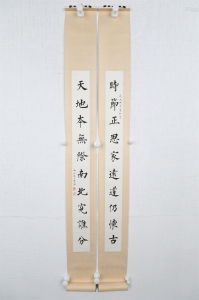 時節正思家遠道仍懷古
天地本無際南北竟誰分